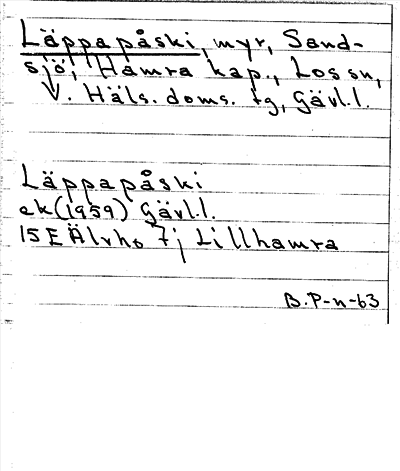 Läppapåski, myr, Sand-
sjö, Hamra kap., Los sn,
V. Häls. doms. tg, Gävl.l.
Läppapåski
ek (1959) Gävl.l.
15E Älvho 7j Lillhamra
B.P-n-63